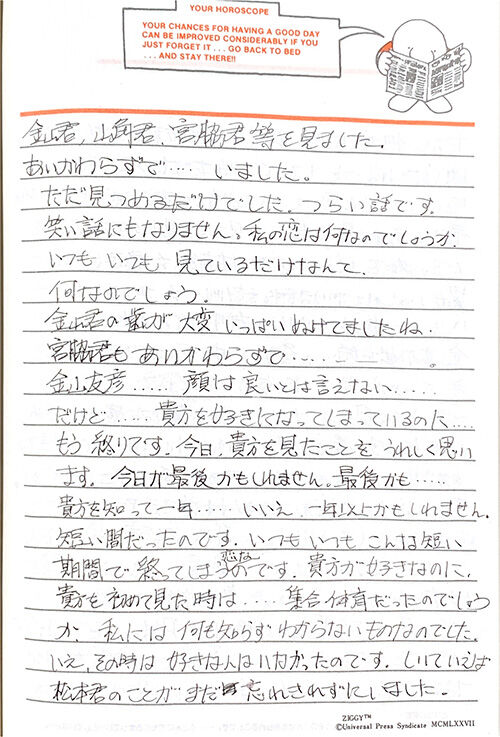 YOUR HOROSCOPE
YOUR CHANCES FOR HAVING A GOOD DAY
CAN BE IMPROVED CONSIDERABLY IF YOU
JUST FORGET IT... GO BACK TO BED
...AND STAY THERE!!
金山君、山角君、宮脇君等を見ました。
あいかわらずで‥‥ いました。
ただ見つめるだけでした。つらい話です。
笑い話にもなりません。私の恋は何なのでしょうか。
いつも いつも 見ているだけなんて、
何なのでしょう。
金山君の歯が 大変 いっぱい ぬけてましたね。
宮脇君も あいかわらずで‥‥‥
金山友彦‥‥‥ 顔は 良いとは言えない‥‥‥
だけど‥‥‥ 貴方を好きになってしまっているのに‥‥
もう 終りです。今日、貴方を見たことを うれしく思い
ます。今日が最後かもしれません。最後かも‥‥‥
貴方を知って一年‥‥‥ いいえ、一年以上かもしれません。
短い間だったのです。いつも いつも こんな短い
期間で 終ってしまう恋なのです。貴方が好きなのに、
貴方を初めて見た時は‥‥‥ 集合体育だったのでしょう
か、私には 何も知らず わからないものなのでした。
いえ、その時は 好きな人は いなかったのです。しいていえば
松本君のことが まだ 忘れきれずに いました。
ZIGGY™
©Universal Press Syndicate MCMLXXVII